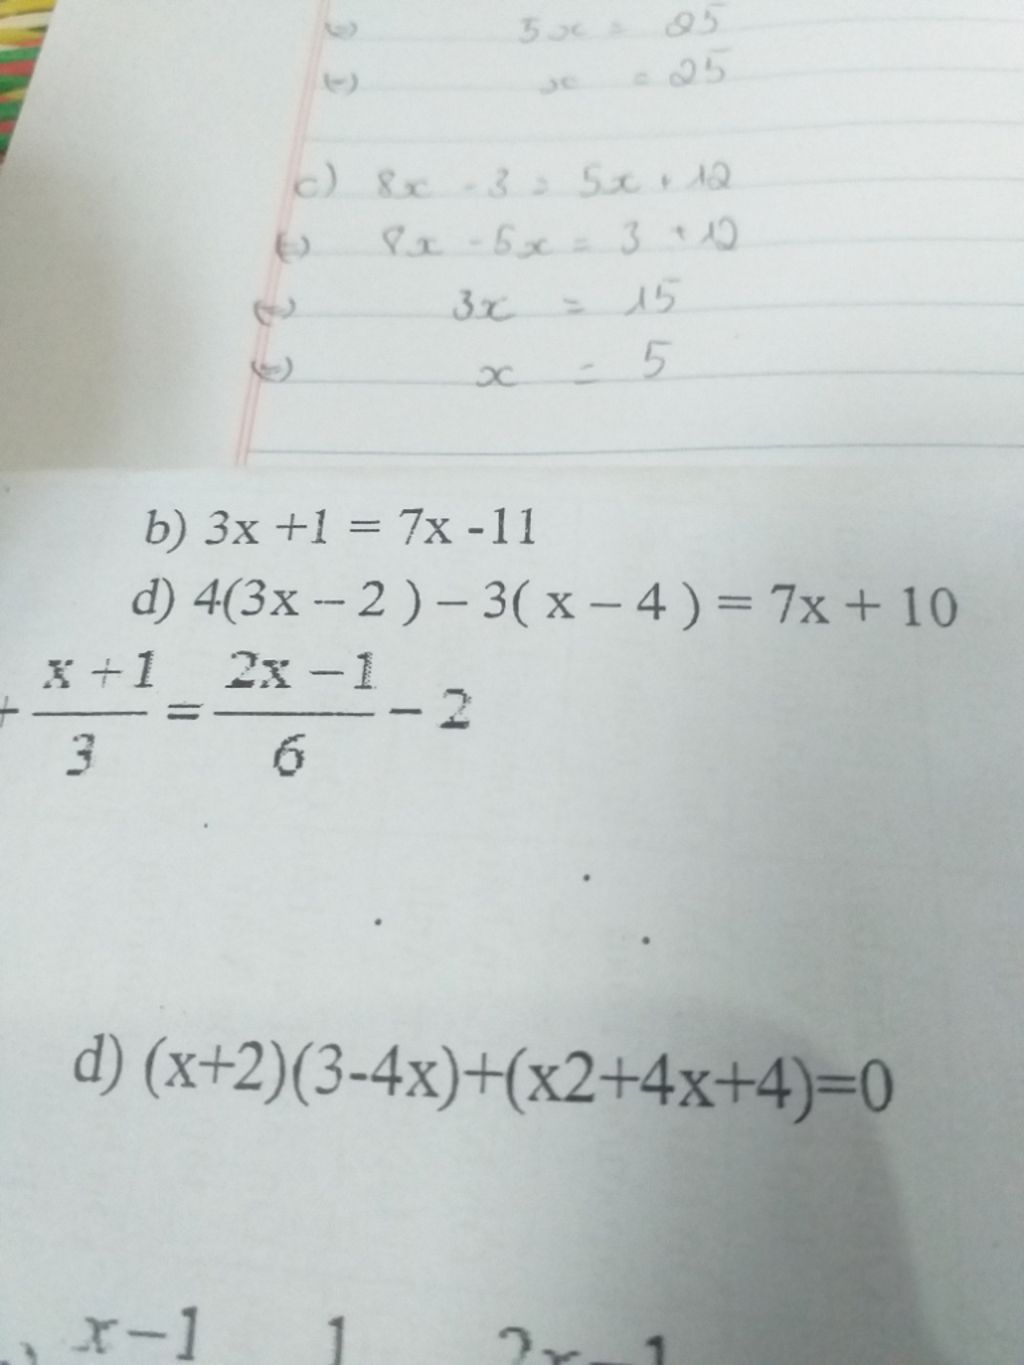 5x = 25
x = 25
c) 8x - 3 = 5x + 12
(=) 8x - 5x = 3 + 12
(=) 3x = 15
(=) x = 5
b) 3x +1 = 7x -11
d) 4(3x – 2 ) – 3( x – 4 ) = 7x + 10
+ x +1 / 3 = 2x – 1 / 6 – 2
d) (x+2)(3-4x)+(x2+4x+4)=0
x–1 1 2x–1